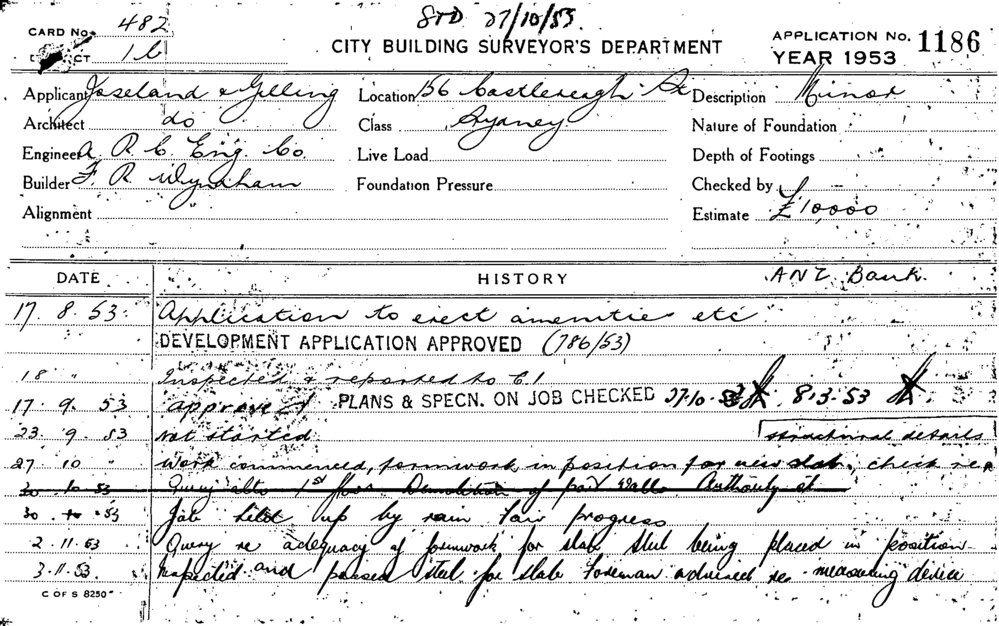 STD 27/10/53
CARD No. 482
CITY BUILDING SURVEYOR'S DEPARTMENT
APPLICATION No. 1186
YEAR 1953
16
Applicant Joseland & Gilling
Location 56 Castlereagh St
Description Minor
Architect do
Class Sydney
Nature of Foundation
Engineer A R C Eng. Co.
Live Load
Depth of Footings
Builder F. R. Wyndham
Foundation Pressure
Checked by
Alignment
Estimate £10,000
DATE
HISTORY
ANZ Bank.
17 8 53 Application to erect amenities etc
DEVELOPMENT APPLICATION APPROVED (786/53)
18 " Inspected & reported to C.I
17. 9. 53 Approved PLANS & SPECN. ON JOB CHECKED 27.10.53 8.3.53
23. 9. 53 Not started structural details
27 10 " Work commenced, formwork in position for new slab, check re
30 10 53 Query alto 1st floor Demolition of part walls Authority
30 10 53 Job held up by rain fair progress
2.11.53 Query re adequacy of formwork for slab steel being placed in position
3.11.53. Inspected and passed steel for slab Foreman advised re measuring device
C OF S 8250